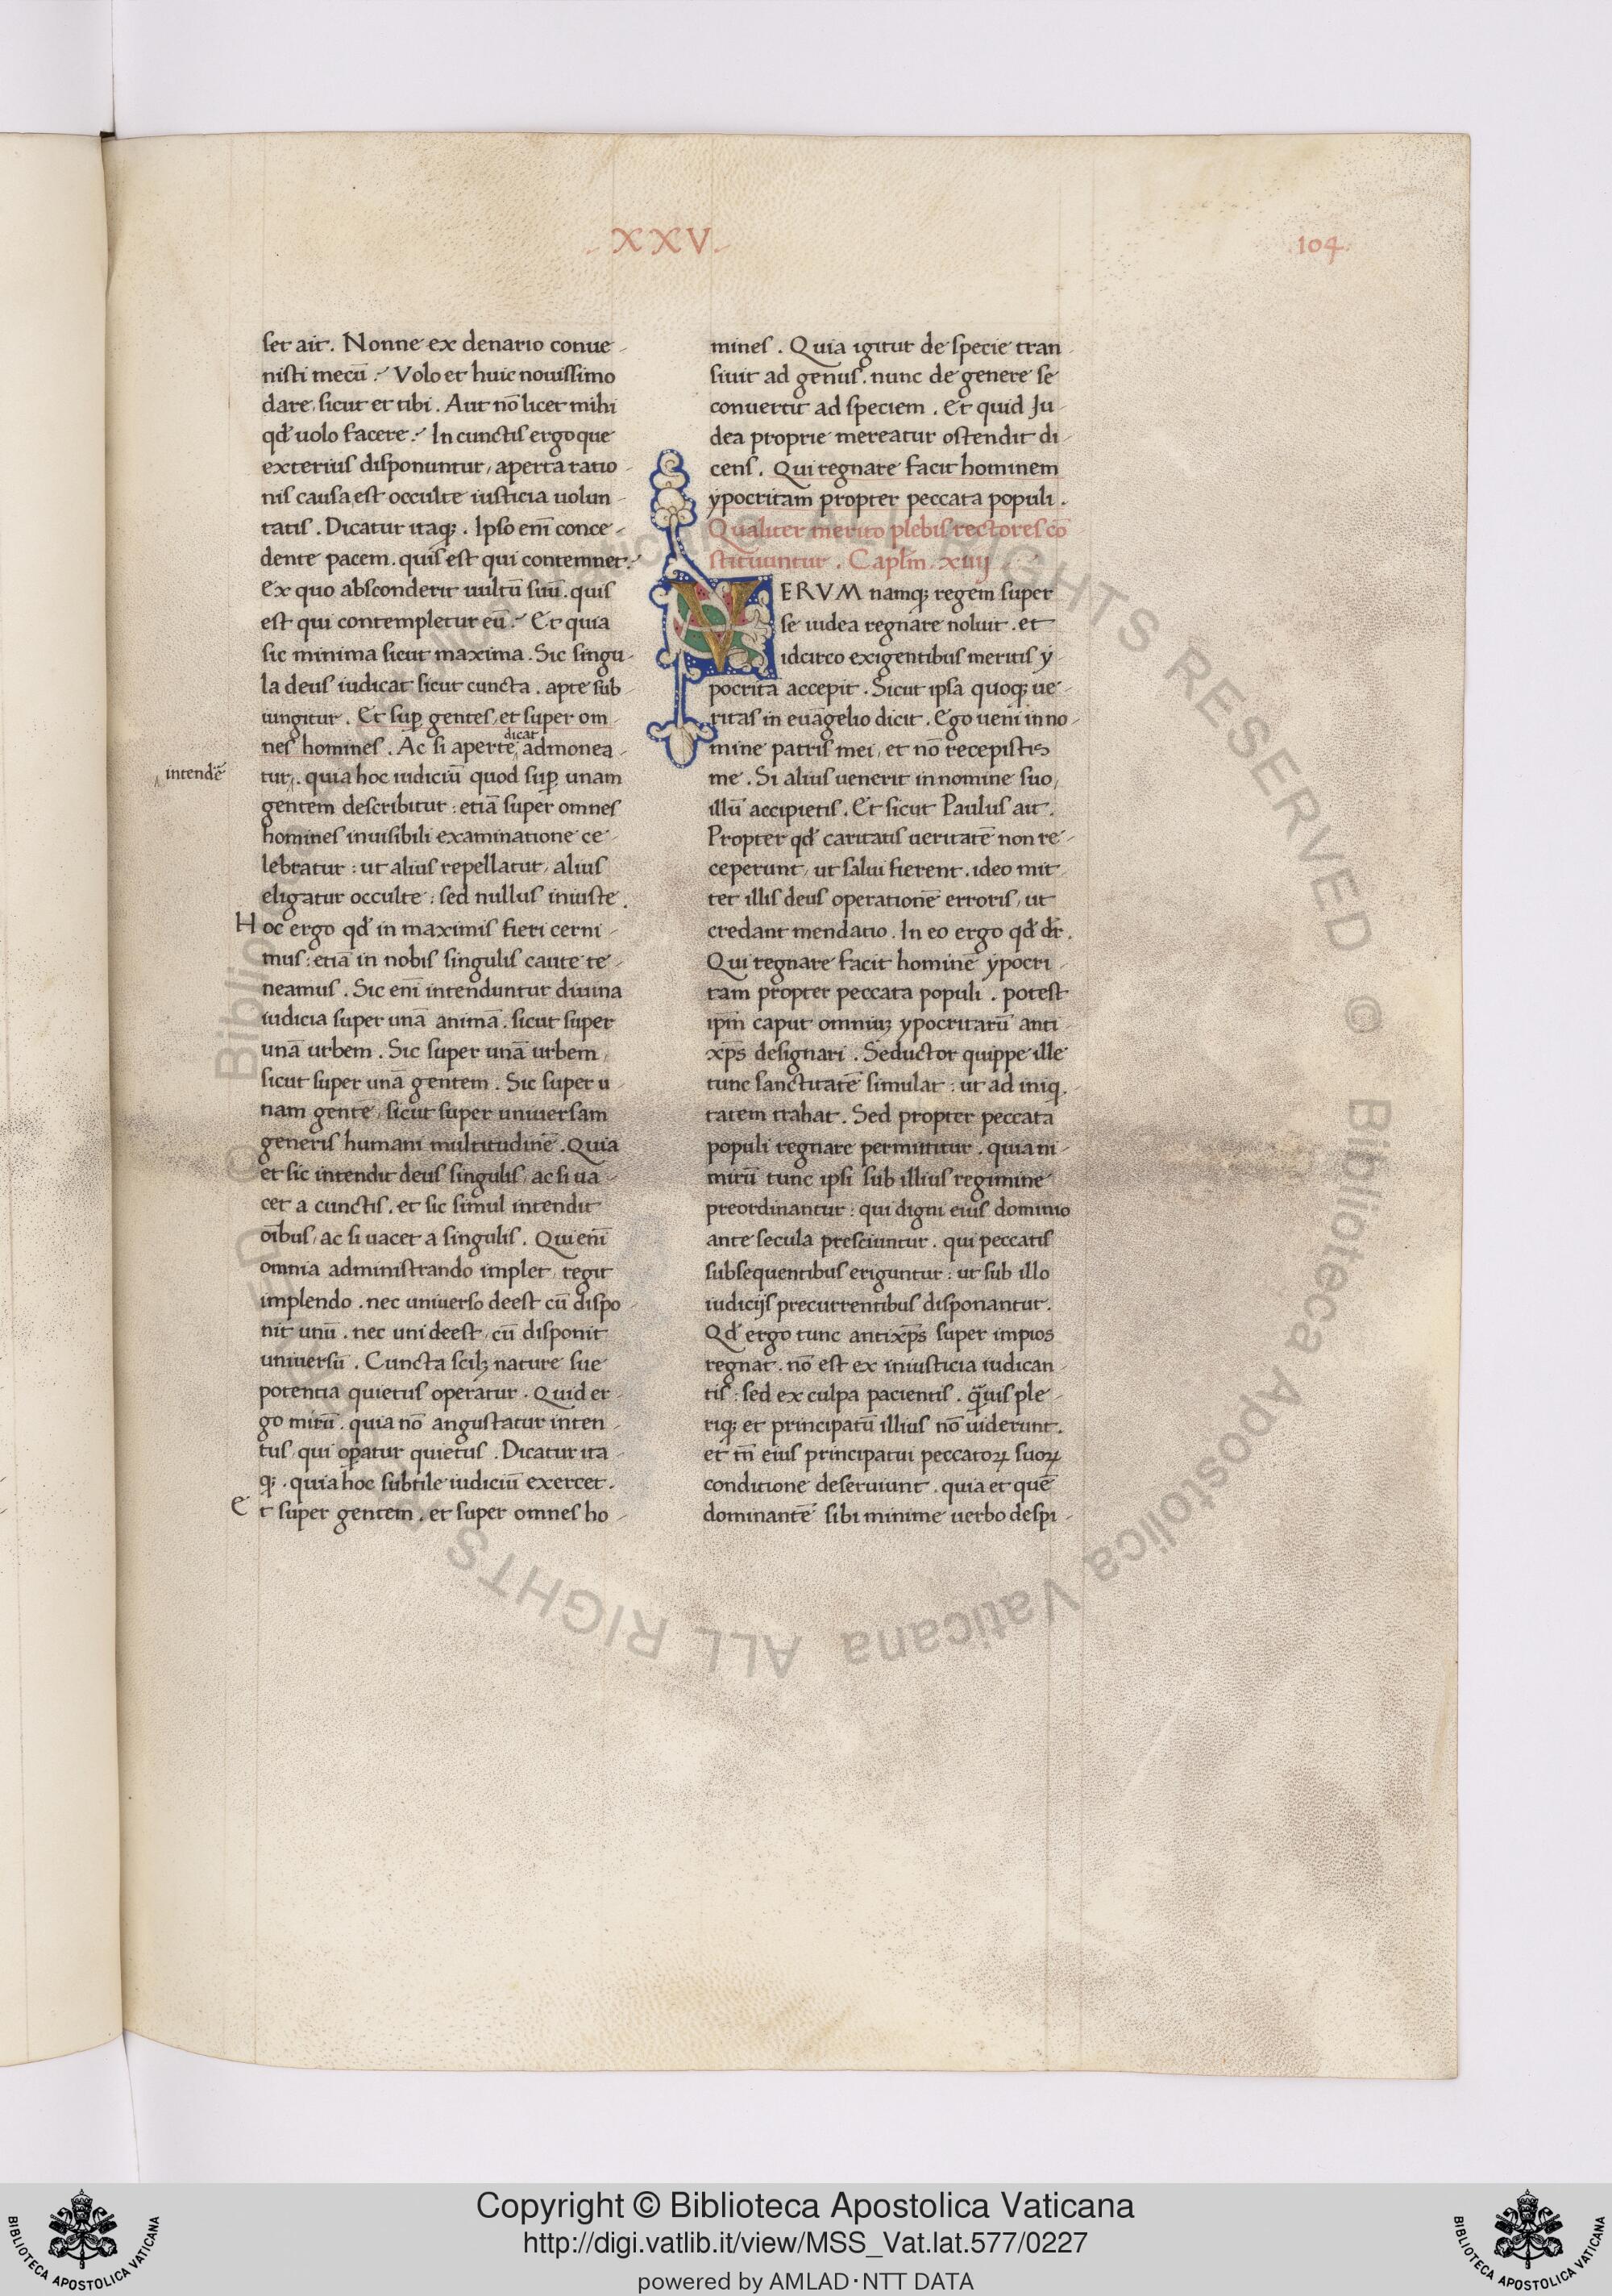 . XXV .
104.
set ait. Nonne ex denario conue-
nisti mecū? Volo et huic nouissimo
dare, sicut et tibi. Aut nō licet mihi
qđ uolo facere? In cunctis ergo que
exterius disponuntur, aperta ratio-
nis causa est occulte iusticia uolun-
tatis. Dicatur itaq;. Ipso eni conce-
dente pacem. quis est qui contemnet?
Ex quo absconderit uultū suū. quis
est qui contempletur eū? Et quia
sic minima sicut maxima. Sic singu-
la deus iudicat sicut cuncta. apte sub-
iungitur. Et suꝑ gentes, et super om-
dicat
nes homines. Ac si aperte, admonea-
intendē
tur. quia hoc iudiciū quod suꝑ unam
gentem describitur: etiā super omnes
homines inuisibili examinatione ce-
lebratur: ut alius repellatur, alius
eligatur occulte: sed nullus iniuste.
Hoc ergo qđ in maximis fieri cerni-
mus: etiā in nobis singulis caute te-
neamus. Sic eni intenduntur diuina
iudicia super unā animā. sicut super
unā urbem. Sic super unā urbem,
sicut super unā gentem. Sic super u-
nam gentē, sicut super uniuersam
generis humani multitudinē. Quia
et sic intendit deus singulis, ac si ua-
cet a cunctis. et sic simul intendit
oībus, ac si uacet a singulis. Qui eni
omnia administrando implet, regit
implendo. nec uniuerso deest cū dispo-
nit unū. nec uni deest, cū disponit
uniuersū. Cuncta scilꝫ nature sue
potentia quietus operatur. Quid er-
go mirū. quia nō angustatur inten-
tus. qui oꝑatur quietus. Dicatur ita-
q;. quia hoc subtile iudiciū exercet.
Et super gentem. et super omnes ho-
mines. Quia igitur de specie tran-
siuit ad genus. nunc de genere se
conuertit ad speciem. Et quid Ju-
dea proprie mereatur ostendit di-
cens. Qui regnare facit hominem
ypocritam propter peccata populi.
Qualiter merito plebis rectores cō
stituuntur. Capl̄m. xiiij
VERVM namq; regem super
se iudea regnare noluit. et
idcirco exigentibus meritis y
pocrita accepit. Sicut ipsa quoq; ue-
ritas in euāgelio dicit. Ego ueni in no-
mine patris mei, et nō recepistis
me. Si alius uenerit in nomine suo,
illū accipietis. Et sicut Paulus ait.
Propter qđ caritatis ueritatē non re-
ceperunt, ut salui fierent. ideo mit-
tet illis deus operationē erroris, ut
credant mendatio. In eo ergo qđ dr̄.
Qui regnare facit hominē ypocri-
tam propter peccata populi. potest
ipm̄ caput omniuꝫ ypocritarū anti-
xp̄s designari. Seductor quippe ille
tunc sanctitatē simulat: ut ad iniq.
tatem trahat. Sed propter peccata
populi regnare permittitur. quia ni-
mirū tunc ipsi sub illius regimine
preordinantur: qui digni eius dominio
ante secula presciuntur. qui peccatis
subsequentibus eriguntur: ut sub illo
iudicijs precurrentibus disponantur.
Qđ ergo tunc antixp̄s super impios
regnat. nō est ex iniusticia iudican-
tis: sed ex culpa pacientis. q̄uis ple-
riq; et principatū illius nō uiderunt.
et tn̄ eius principatui peccatoꝝ suoꝝ
conditione deseruiunt. quia et quē
dominantē sibi minime uerbo despi-
Copyright © Biblioteca Apostolica Vaticana
http://digi.vatlib.it/view/MSS_Vat.lat.577/0227
powered by AMLAD·NTT DATA
BIBLIOTECA APOSTOLICA VATICANA
BIBLIOTECA APOSTOLICA VATICANA